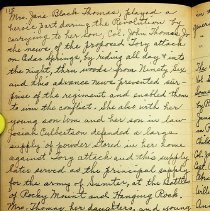 Mrs. Jane Black Thomas, played a
heroic part during the Revolution by
carrying to her son, Col. John Thomas Jr
the news of the proposed Tory attack
on Cedar Springs, by riding all day & into
the night, three woods from Ninety Six
and this advance news prevented sur-
prise of the regiment and enabled them
to win the conflict. She also with her
young son Wm and her son in law
Josiah Culbertson defended a large
supply of powder stored in her home
against Tory attack and this supply
later served as the principal supply
for the army of Sumter, at the Battles
of Rocky Mount and Hanging Rock.
Mrs. Thomas, her daughters, and young